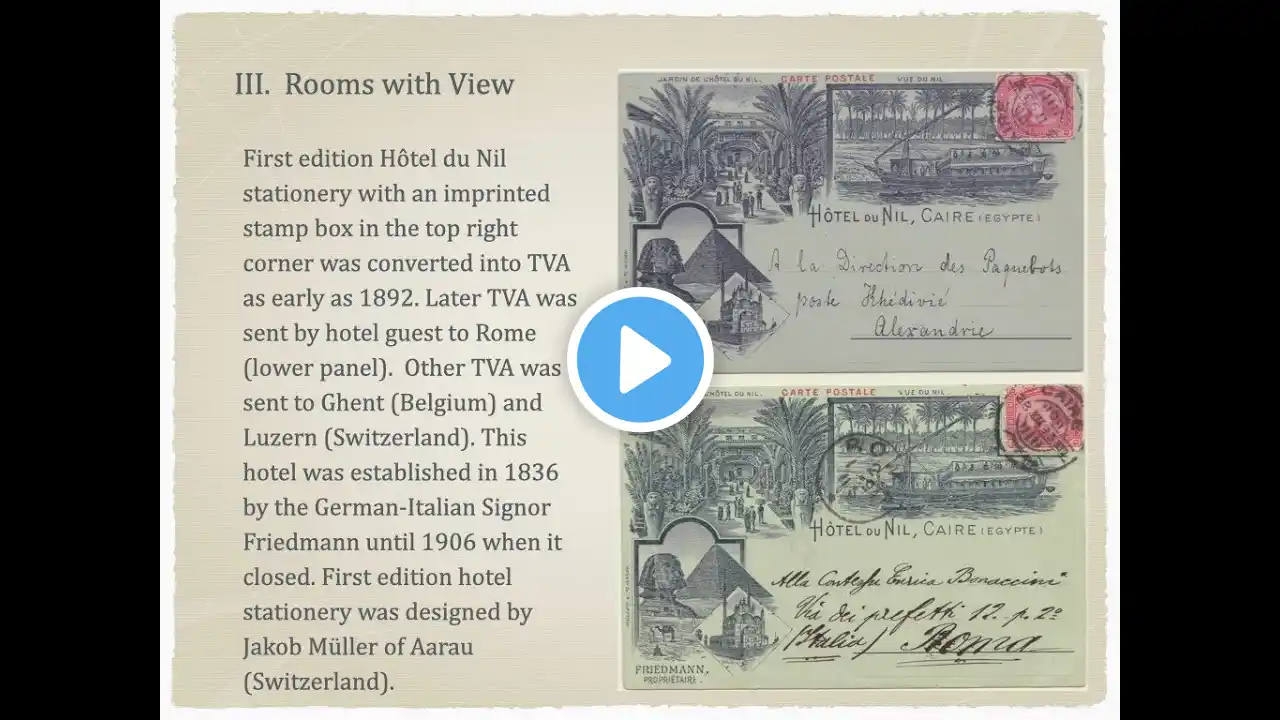 III. Rooms with View
First edition Hôtel du Nil
stationery with an imprinted
stamp box in the top right
corner was converted into TVA
as early as 1892. Later TVA was
sent by hotel guest to Rome
(lower panel). Other TVA was
sent to Ghent (Belgium) and
Luzern (Switzerland). This
hotel was established in 1836
by the German-Italian Signor
Friedmann until 1906 when it
closed. First edition hotel
stationery was designed by
Jakob Müller of Aarau
(Switzerland).
JARDIN DE L'HÔTEL DU NIL. CARTE POSTALE VUE DU NIL
HÔTEL DU NIL, CAIRE (EGYPTE)
A la Direction des Paquebots
poste Khédivié
Alexandrie
L'HÔTEL DU NIL. CARTE POSTALE VUE DU NIL
HÔTEL DU NIL, CAIRE (EGYPTE)
Alla Contessa Enrica Bonaccini
Via dei prefetti 12. p. 2º
(Italia) Roma
FRIEDMANN,
PROPRIÉTAIRE.